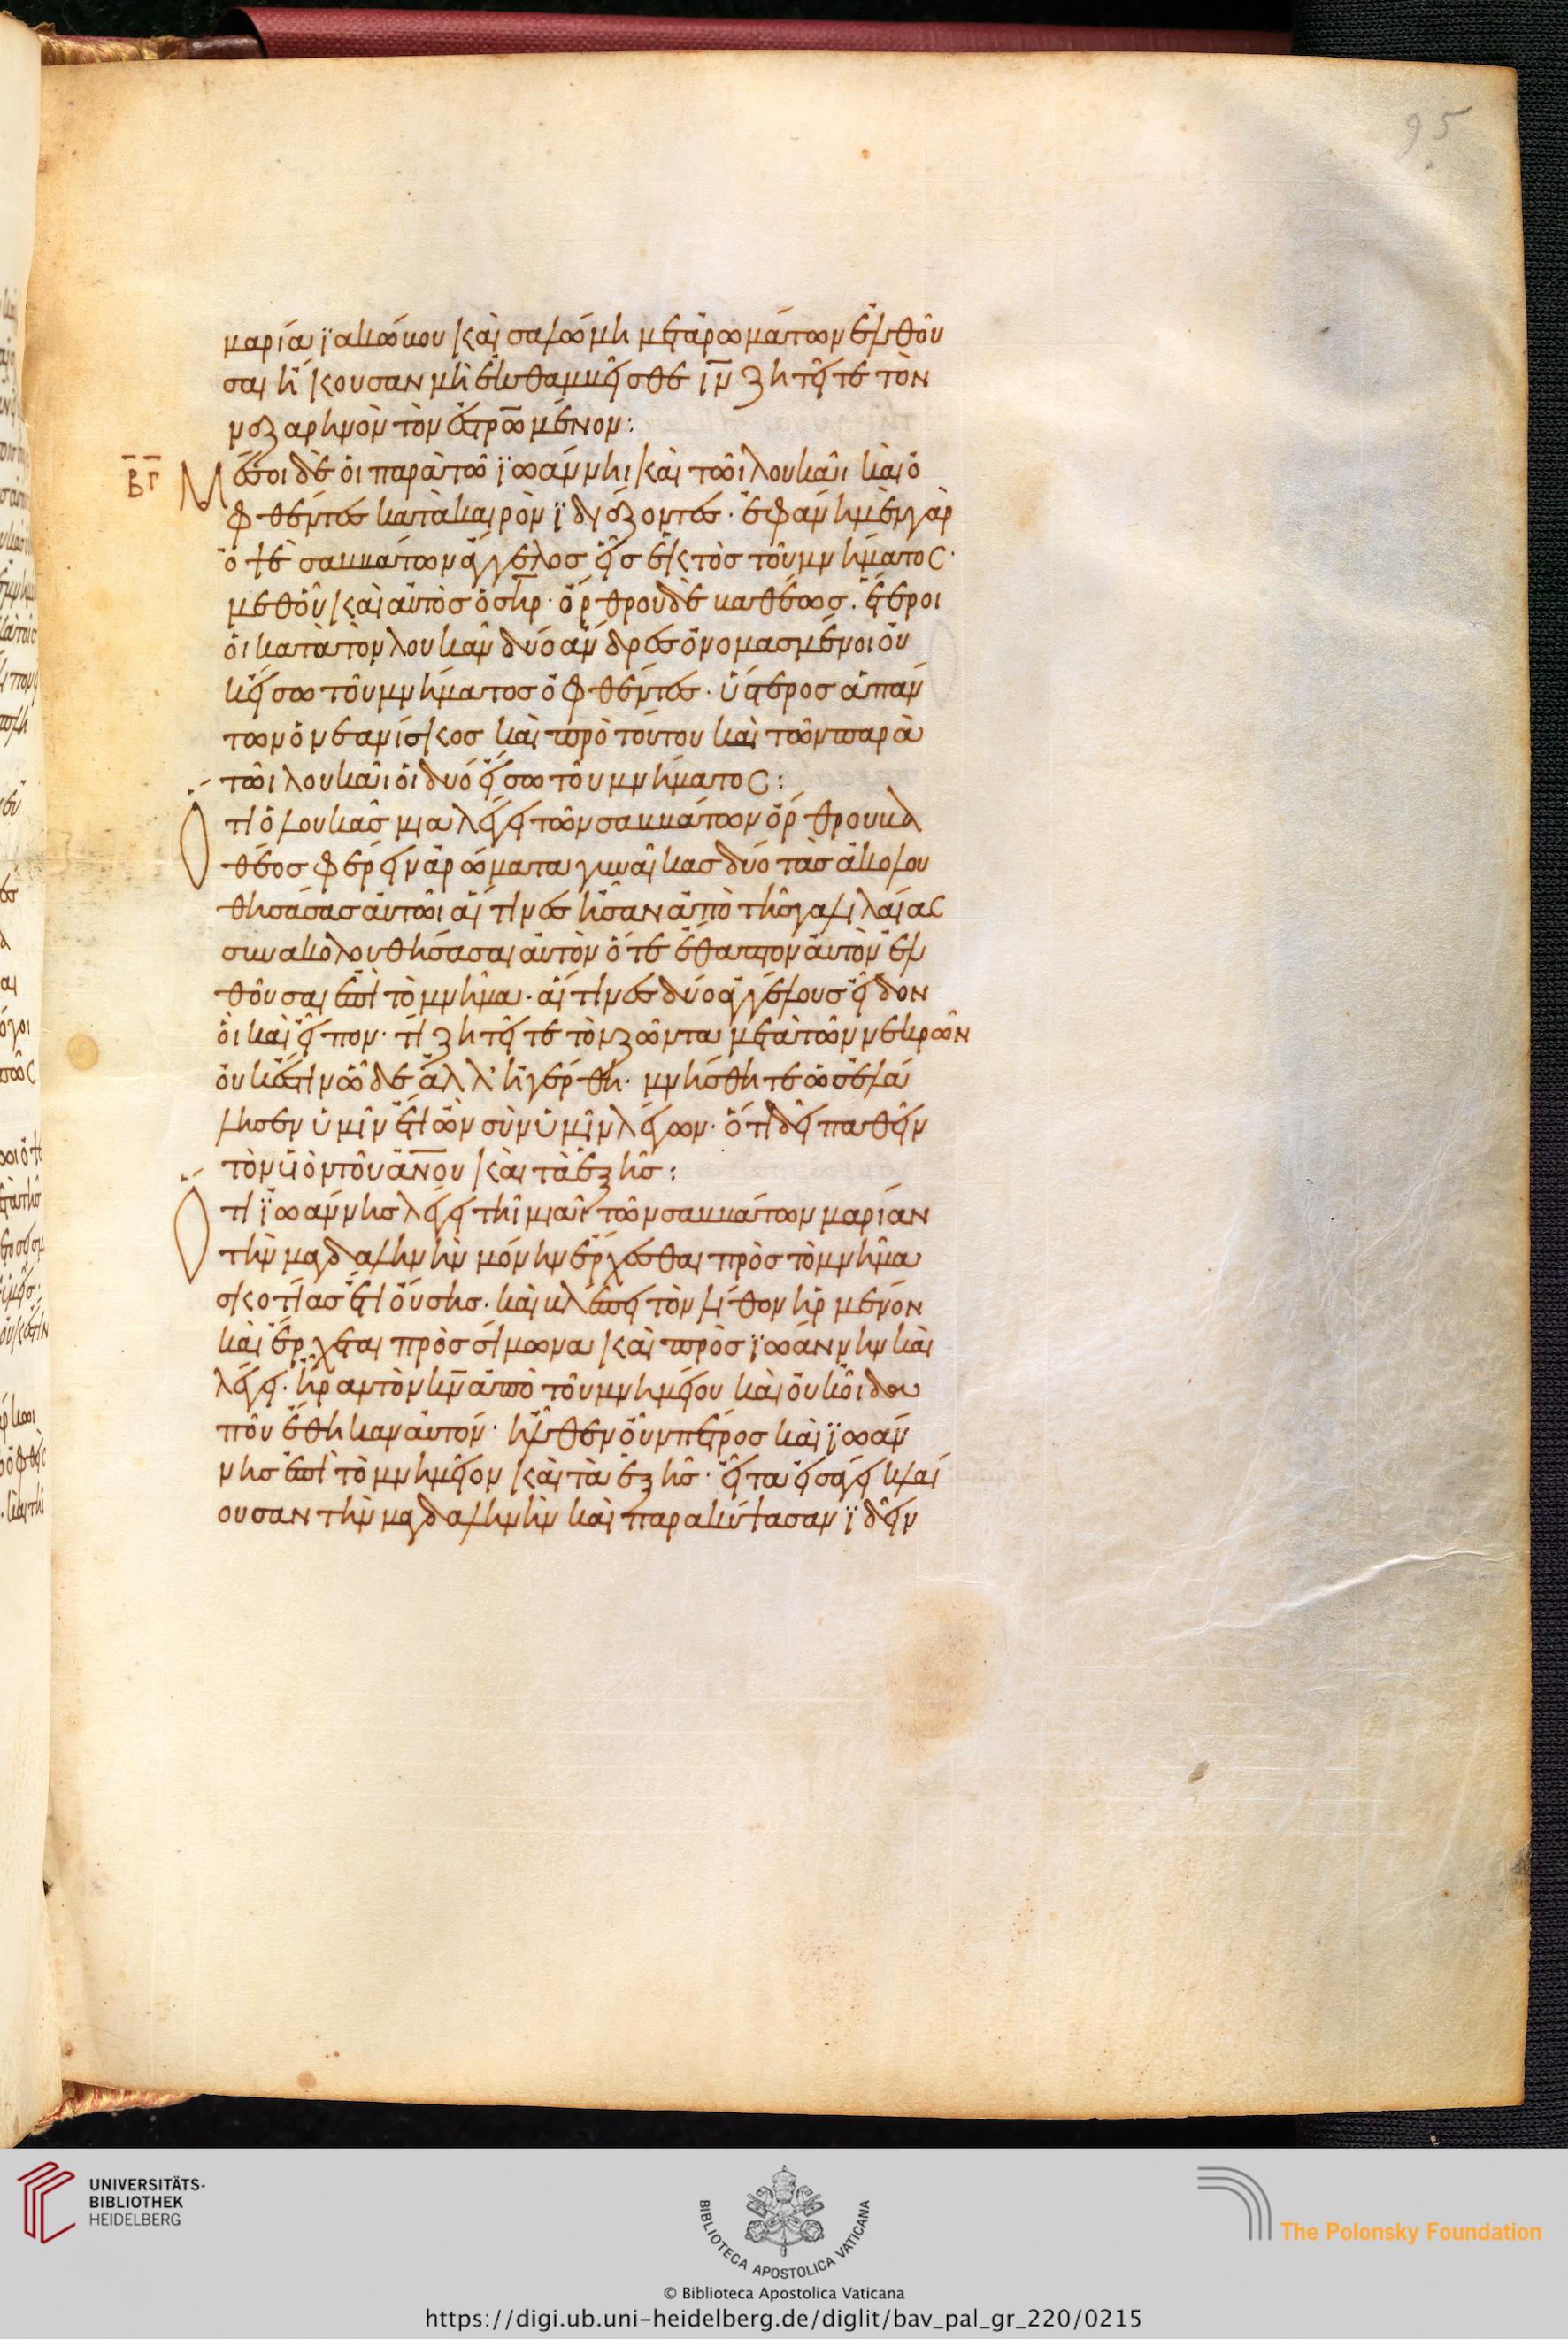 95
μαρία ϊακώβου καὶ σαλώμη μετ' ἀρωμάτων ἐλθοῦ
σαι ἤκουσαν μὴ ἐκθαμβεῖσθε ιν ζητεῖτε τὸν
ναζαρηνὸν τὸν ἐστρωμένον:
β γ
Μέσοι δὲ οἱ παρὰ τῶ ϊωάννηι καὶ τῶι λουκᾶι καὶ ὁ
φθέντες κατὰ καιρὸν ϊδιάζοντες· ἐφάνη μὲν γὰρ
ὀψὲ σαββάτων ἄγγελος εἷς ἐκτὸς τοῦ μνήματος·
μεθ' οὗ καὶ αὐτὸς ὁ σηρ· ὄρθρου δὲ βαθέως· ἕτεροι
οἱ κατὰ τὸν λουκᾶν δύο ἄνδρες ὀνομασμένοι οὐ
κ ἔσω τοῦ μνήματος ὀφθέντες· ὕστερος ἁπάν
των ὁ νεανίσκος καὶ πρὸ τούτου καὶ τῶν παρὰ
τῶι λουκᾶι οἱ δύο ἔσω τοῦ μνήματος:
Ὅτι ὁ λουκᾶς μιᾶ λέγει τῶν σαββάτων ὄρθρου βα
θέος φέρειν ἀρώματα γυναῖκας δύο τὰς ἀκολου
θησάσας αὐτῶι αἵτινες ἦσαν ἀπὸ τῆς γαλιλαίας
συνακολουθήσασαι αὐτὸν ὅτε ἔθαπτον αὐτὸν ἐλ
θοῦσαι ἐπὶ τὸ μνῆμα· αἵτινες δύο ἀγγέλους εἶδον
οἳ καὶ εἶπον· τί ζητεῖτε τὸν ζῶντα μετὰ τῶν νεκρῶν
οὐκ ἔστιν ὧδε ἀλλ' ἠγέρθη· μνήσθητε ὡς ἐλά
λησεν ὑμῖν ἔτι ὢν σὺν ὑμῖν λέγων· ὅτι δεῖ παθεῖν
τὸν υἱὸν τοῦ ανου καὶ τὰ ἑξῆς:
Ὅτι ϊωάννης λέγει τῆι μιᾶι τῶν σαββάτων μαρίαν
τὴν μαγδαληνὴν μόνην ἔρχεσθαι πρὸς τὸ μνῆμα
σκοτίας ἔτι οὔσης· καὶ βλέπει τὸν λίθον ἠρμένον
καὶ ἔρχεται πρὸς σίμωνα καὶ πρὸς ϊωάννην καὶ
λέγει· ἦραν τὸν κν ἀπὸ τοῦ μνημείου καὶ οὐκ οἶδα
ποῦ ἔθηκαν αὐτόν· ἦλθεν οὖν πέτρος καὶ ϊωάν
νης ἐπὶ τὸ μνημεῖον καὶ τὰ ἑξῆς· εἶτα εἰσάγει κλαί
ουσαν τὴν μαγδαληνὴν καὶ παρακύψασαν ϊδεῖν
UNIVERSITÄTS-
BIBLIOTHEK
HEIDELBERG
BIBLIOTECA APOSTOLICA VATICANA
The Polonsky Foundation
© Biblioteca Apostolica Vaticana
https://digi.ub.uni-heidelberg.de/diglit/bav_pal_gr_220/0215